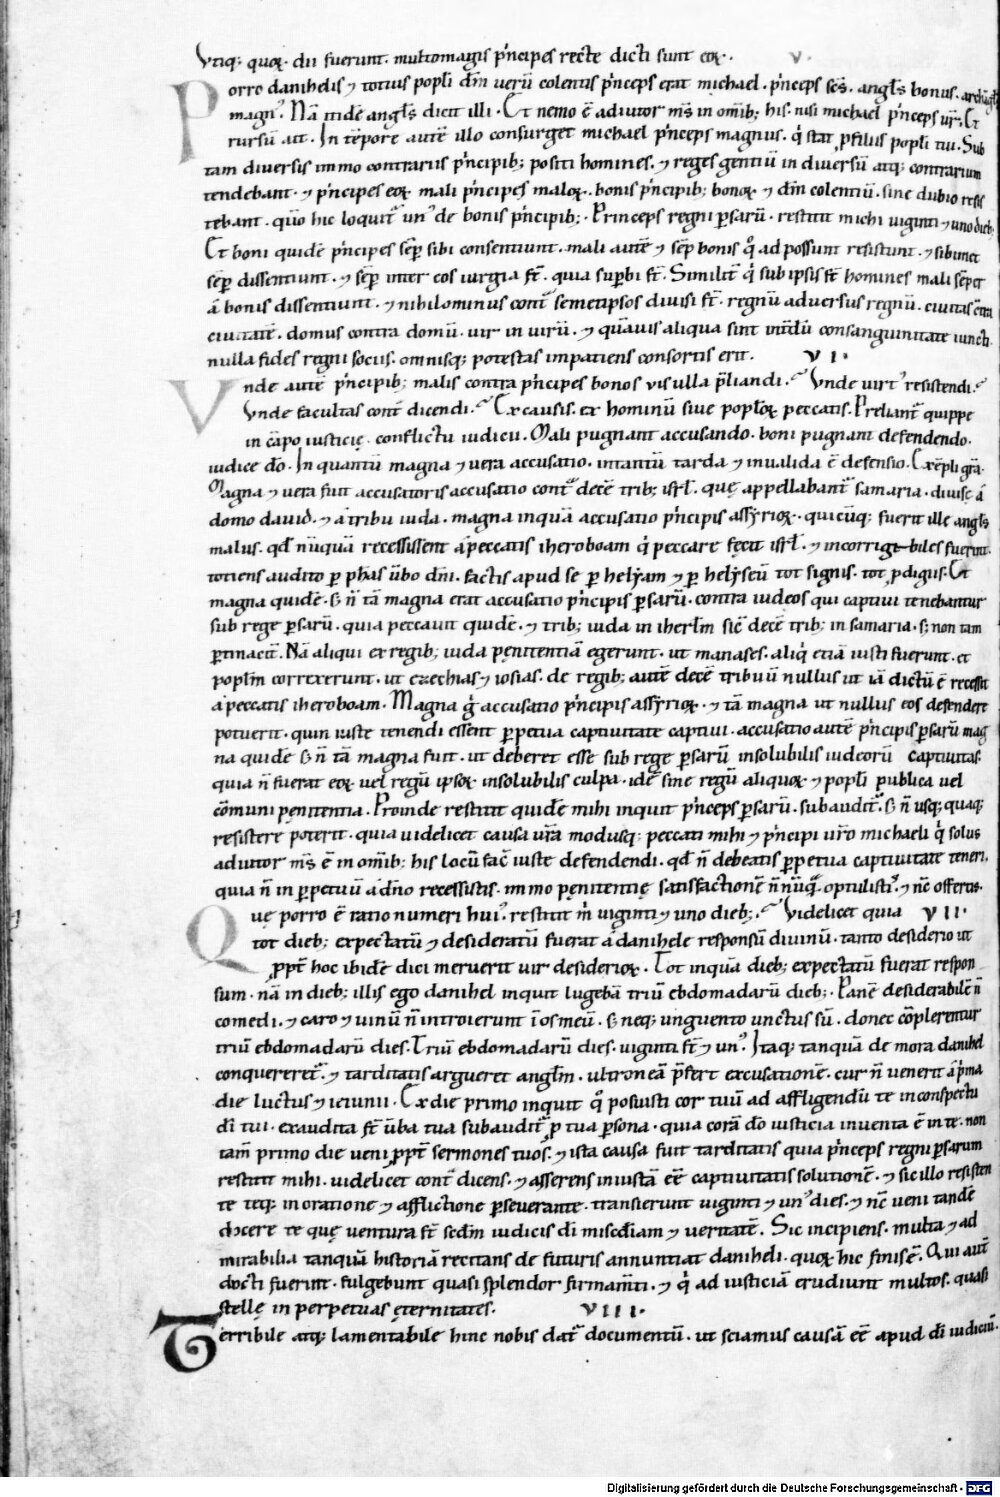 Vtiq; quoꝝ dii fuerunt. multomagis p̄ncipes recte dicti sunt eoꝝ. V.
Porro danihelis ⁊ totius popl̄i dm̄ uerū colentis p̄nceps erat michael. p̄nceps scs̄. angl̄s bonus. archangl̄s
magn᾿. Nā itidē angl̄s dicit illi. Et nemo ē adiutor ms̄ in om̄ib; his. nisi michael p̄nceps ur̄. Et
rursū ait. In tēpore autē illo consurget michael p̄nceps magnus. q̇ stat ꝓ filiis popl̄i tui. Sub
tam diuersis immo contrariis p̄ncipib; positi homines. ⁊ reges gentiū in diuersū atq; contrarium
tendebant. ⁊ p̄ncipes eoꝝ mali p̄ncipes maloꝝ. bonis p̄ncipib; bonoꝝ ⁊ dm̄ colentiū. sine dubio resis
tebant. quō hic loquit᷑ un᾿ de bonis p̄ncipib;. Princeps regni ꝑsarū. restitit michi uiginti ⁊ uno dieb;
Et boni quidē p̄ncipes sēp sibi consentiunt. mali autē ⁊ sēp bonis q̊ ad possunt resistunt. ⁊ sibimet
sēp dissentiunt. ⁊ sēp inter eos iurgia st̄. quia supbi st̄. Similit᷑ q̇ sub ipsis st̄ homines mali sēper
ā bonis dissentiunt. ⁊ nihilominus cont᷑ semetipsos diuisi st̄. regnū aduersus regnū. ciuitas c̄tra
ciuitatē. domus contra domū. uir in uirū. ⁊ quāuis aliqua sint inuic̄ē consanguinitate iuncti.
nulla fides regni sociis. omnisq; potestas impatiens consortis erit. VI.
Vnde autē p̄ncipib; malis contra p̄ncipes bonos uis ulla p̄liandi. Vnde uirt᾿ resistendi.
Vnde facultas cont᷑ dicendi. Ex causis. ex hominū siue popl̄oꝝ peccatis. Preliant᷑ quippe
in cāpo iusticię. conflictu iudicii. Mali pugnant accusando. boni pugnant defendendo.
iudice dō. In quantū magna ⁊ uera accusatio. intantū tarda ⁊ inualida ē defensio. Exēpli gr̄a.
Magna ⁊ uera fuit accusatoris accusatio cont᷑ decē trib; isrl̄. quę appellabant᷑ samaria. diuisę ā
domo dauid. ⁊ ā tribu iuda. magna inquā accusatio p̄ncipis assyrioꝝ. quicūq; fuerit ille angl̄s
malus. qd̄ nūquā recessissent ā peccatis iheroboam q̇ peccare fecit isrl̄. ⁊ incorrigibiles fuerint.
totiens audito ꝑ ꝓph̄as ūbo dn̄i. factis apud se ꝑ helyam ⁊ ꝑ helyseū tot signis. tot ꝓdigiis. Et
magna quidē. s; n̄ tā magna erat accusatio p̄ncipis ꝑsarū. contra iudeos qui captiui tenebantur
sub rege ꝑsarū. quia peccauit quidē. ⁊ trib; iuda in iherlm̄ sic᷑ decē trib; in samaria. s; non tam
ꝑtinacit᷑. Nā aliqui ex regib; iuda pęnitentiā egerunt. ut manases. aliq̇ etiā iusti fuerunt. et
popl̄m correxerunt. ut ezechias ⁊ iosias. de regib; autē decē tribuū nullus ut iā dictū ē recessit
ā peccatis iheroboam. Magna g̊ accusatio p̄ncipis assyrioꝝ. ⁊ tā magna ut nullus eos defendere
potuerit. quin iuste tenendi essent ꝑpetua captiuitate captiui. accusatio autē p̄ncipis ꝑsarū mag
na quidē s; n̄ tā magna fuit. ut deberet esse sub rege ꝑsarū insolubilis iudeorū captiuitas.
quia n̄ fuerat eoꝝ uel regū ipsoꝝ insolubilis culpa. idē sine regū aliquoꝝ ⁊ popl̄i publica uel
cōmuni pęnitentia. Proinde restitit quidē mihi inquit p̄nceps ꝑsarū. subaudit᷑. s; n̄ usq; quaq;
resistere poterit. quia uidelicet causa ur̄a modusq; peccati mihi ⁊ p̄ncipi ur̄o michaeli q̇ solus
adiutor ms̄ ē in om̄ib; his locū fac̄ iuste defendendi. qd̄ n̄ debeatis ꝑpetua captiuitate teneri.
quia n̄ in ꝑpetuū ā dn̄o recessistis. immo pęnitentię satisfactionē n̄nūq᷑ optulisti᷑. ⁊ nc̄ offertis.
Quę porro ē ratio numeri hui᾿. restitit m̄ uiginti ⁊ uno dieb;. Videlicet quia VII.
tot dieb; expectatū ⁊ desideratū fuerat ā danihele responsū diuinū. tanto desiderio ut
ꝓpt̄ hoc ibidē dici meruerit uir desiderioꝝ. Tot inquā dieb; expectatū fuerat respon
sum. nā in dieb; illis ego danihel inquit lugebā triū ebdomadarū dieb;. Panē desiderabilē n̄
comedi. ⁊ caro ⁊ uinū n̄ introierunt ī os meū. s; neq; unguento unctus sū. donec cōplerentur
triū ebdomadarū dies. Triū ebdomadarū dies. uiginti st̄ ⁊ un᾿. Itaq; tanquā de mora danihel
conquereret᷑. ⁊ tarditatis argueret anglm̄. ultroneā p̄fert excusationē. cur n̄ venerit ā ṗma
die luctus ⁊ ieiunii. Ex die primo inquit q̊ posuisti cor tuū ad affligendū te in conspectu
dī tui. exaudita st̄ ūba tua subaudit᷑ ꝓ tua ꝑsona. quia corā dō iusticia inuenta ē in te. non
tam̄ primo die ueni ꝓpt̄ sermones tuos. ⁊ ista causa fuit tarditatis quia p̄nceps regni ꝑsarum
restitit mihi. uidelicet cont᷑ dicens. ⁊ asserens iniustā eē captiuitatis solutionē. ⁊ sic illo resisten
te teq; in oratione ⁊ afflictione ꝑseuerante. transierunt uiginti ⁊ un᾿ dies. ⁊ nc̄ ueni tandē
docere te quę uentura st̄ sedm̄ iudicis dī misediam ⁊ ueritatē. Sic incipiens. multa ⁊ ad
mirabilia tanquā historiā recitans de futuris annuntiat daniheli. quoꝝ hic finis ē. Qui aut̄
docti fuerint. fulgebunt quasi splendor firmam̄ti. ⁊ q̇ ad iusticiā erudiunt multos. quasi
stellę in perpetuas ęternitates. VIII.
Terribile atq; lamentabile hinc nobis dat᷑ documentū. ut sciamus causā eē apud dī iudiciū.
Digitalisierung gefördert durch die Deutsche Forschungsgemeinschaft - DFG